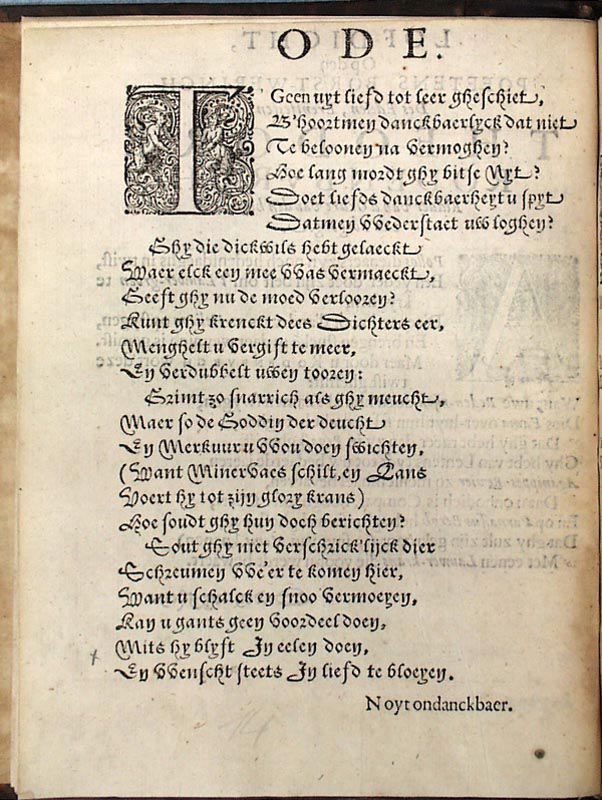 ODE.
T'Geen uyt liefd tot leer gheschiet,
B'hoort mey danckbaerlyck dat niet
Te belooney na vermoghey?
Hoe lang wordt ghy bitse Nyt?
Doet liefds danckbaerheyt u spyt
Dat mey vvederstaet uw loghey?
Ghy die dickwils hebt gelaeckt
Waer elck eey mee vvas vermaeckt,
Geeft ghy nu de moed verloorey?
Kunt ghy krenckt dees Dichters eer,
Menghelt u vergift te meer,
Ey verdubbelt uwey toorey:
Grimt zo snarrich als ghy meucht,
Maer so de Goddiy der deucht
Ey Merkuur u vvou doey swichtey,
(Want Minervaes schilt, ey Lans
Voert hy tot zijy glory krans)
Hoe soudt ghy huy doch berichtey?
Sout ghy niet verschrick'lijck dier
Schreumey vve'er te komey hier,
Want u schalck ey snoo vermoeyey,
Kay u gants geey voordeel doey,
Mits hy blyft Iy eeley doey,
Ey vvenscht steets Iy liefd te bloeyey.
Noyt ondanckbaer.